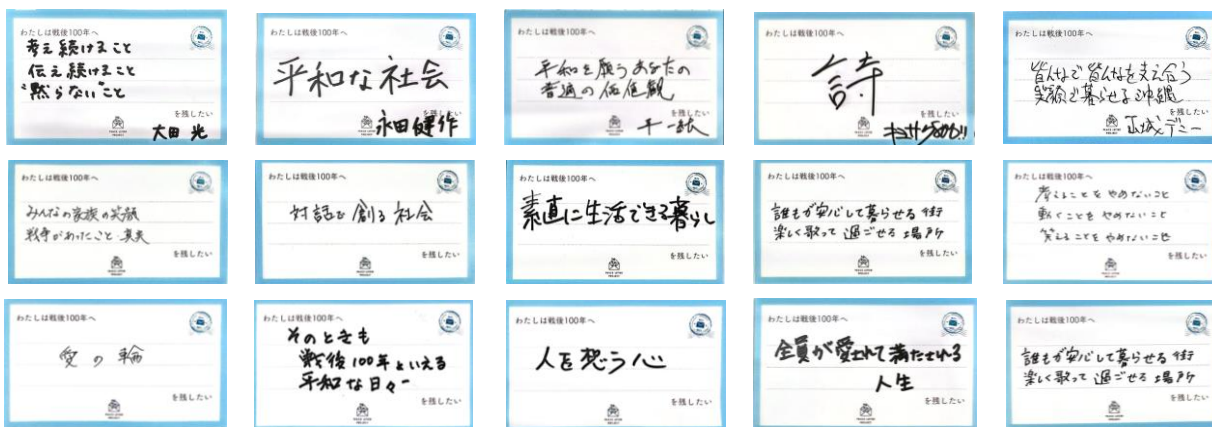 わたしは戦後100年へ
考え続けること
伝え続けること
"黙らない"こと
を残したい
太田 光
わたしは戦後100年へ
平和な社会
を残したい
永田健作
わたしは戦後100年へ
平和を願うあなたの
普通の価値観
を残したい
わたしは戦後100年へ
詩
を残したい
わたしは戦後100年へ
皆んなで皆んなを支え合う
笑顔で暮らせる沖縄
を残したい
わたしは戦後100年へ
みんなの家族の笑顔
戦争があったこと・真実
を残したい
わたしは戦後100年へ
対話で創る社会
を残したい
わたしは戦後100年へ
素直に生活できる暮らし
を残したい
わたしは戦後100年へ
誰もが安心して暮らせる街
楽しく歌って過ごせる場所
を残したい
わたしは戦後100年へ
考えることをやめないこと
動くことをやめないこと
笑えることをやめないこと
を残したい
わたしは戦後100年へ
愛の輪
を残したい
わたしは戦後100年へ
そのときも
戦後100年といえる
平和な日々
を残したい
わたしは戦後100年へ
人を想う心
を残したい
わたしは戦後100年へ
全員が愛されて満たされる
人生
を残したい
わたしは戦後100年へ
誰もが安心して暮らせる街
楽しく歌って過ごせる場所
を残したい